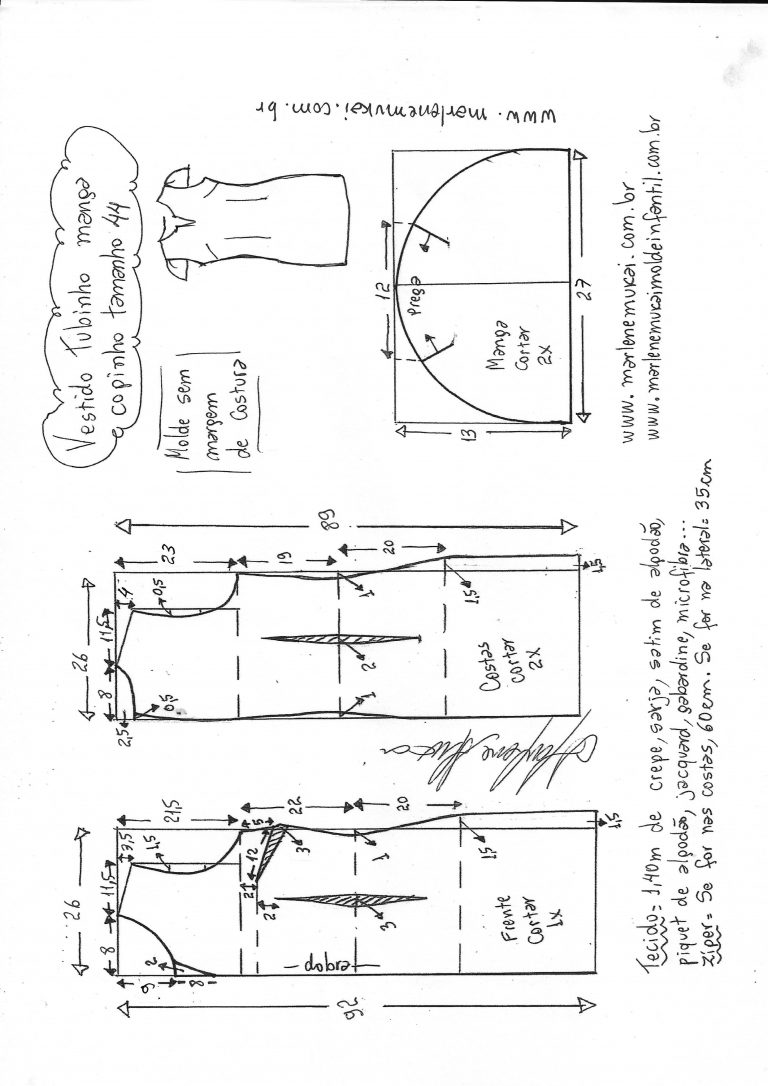 Vestido Tubinho manga
copinho tamanho 44
Molde sem
margem
de costura
www.marlenemukai.com.br
12
Prega
Manga
cortar
2x
13
27
www.marlenemukai.com.br
www.marlenemukaimoldeinfantil.com.br
26
8
11,5
4
2,5
0,5
0,5
23
19
20
89
1
2
1
1,5
1,5
Costas
cortar
2x
26
8
11,5
3,5
1,5
9
8
2
21,5
22
20
5
12
3
2
2
3
1
1,5
1,5
92
dobra
Frente
Cortar
1x
Tecido= 1,40m de crepe, sarja, setim de algodão,
piquet de algodão, jacquard, gabardine, microfibra...
Zíper= Se for nas costas, 60cm. Se for na lateral= 35cm